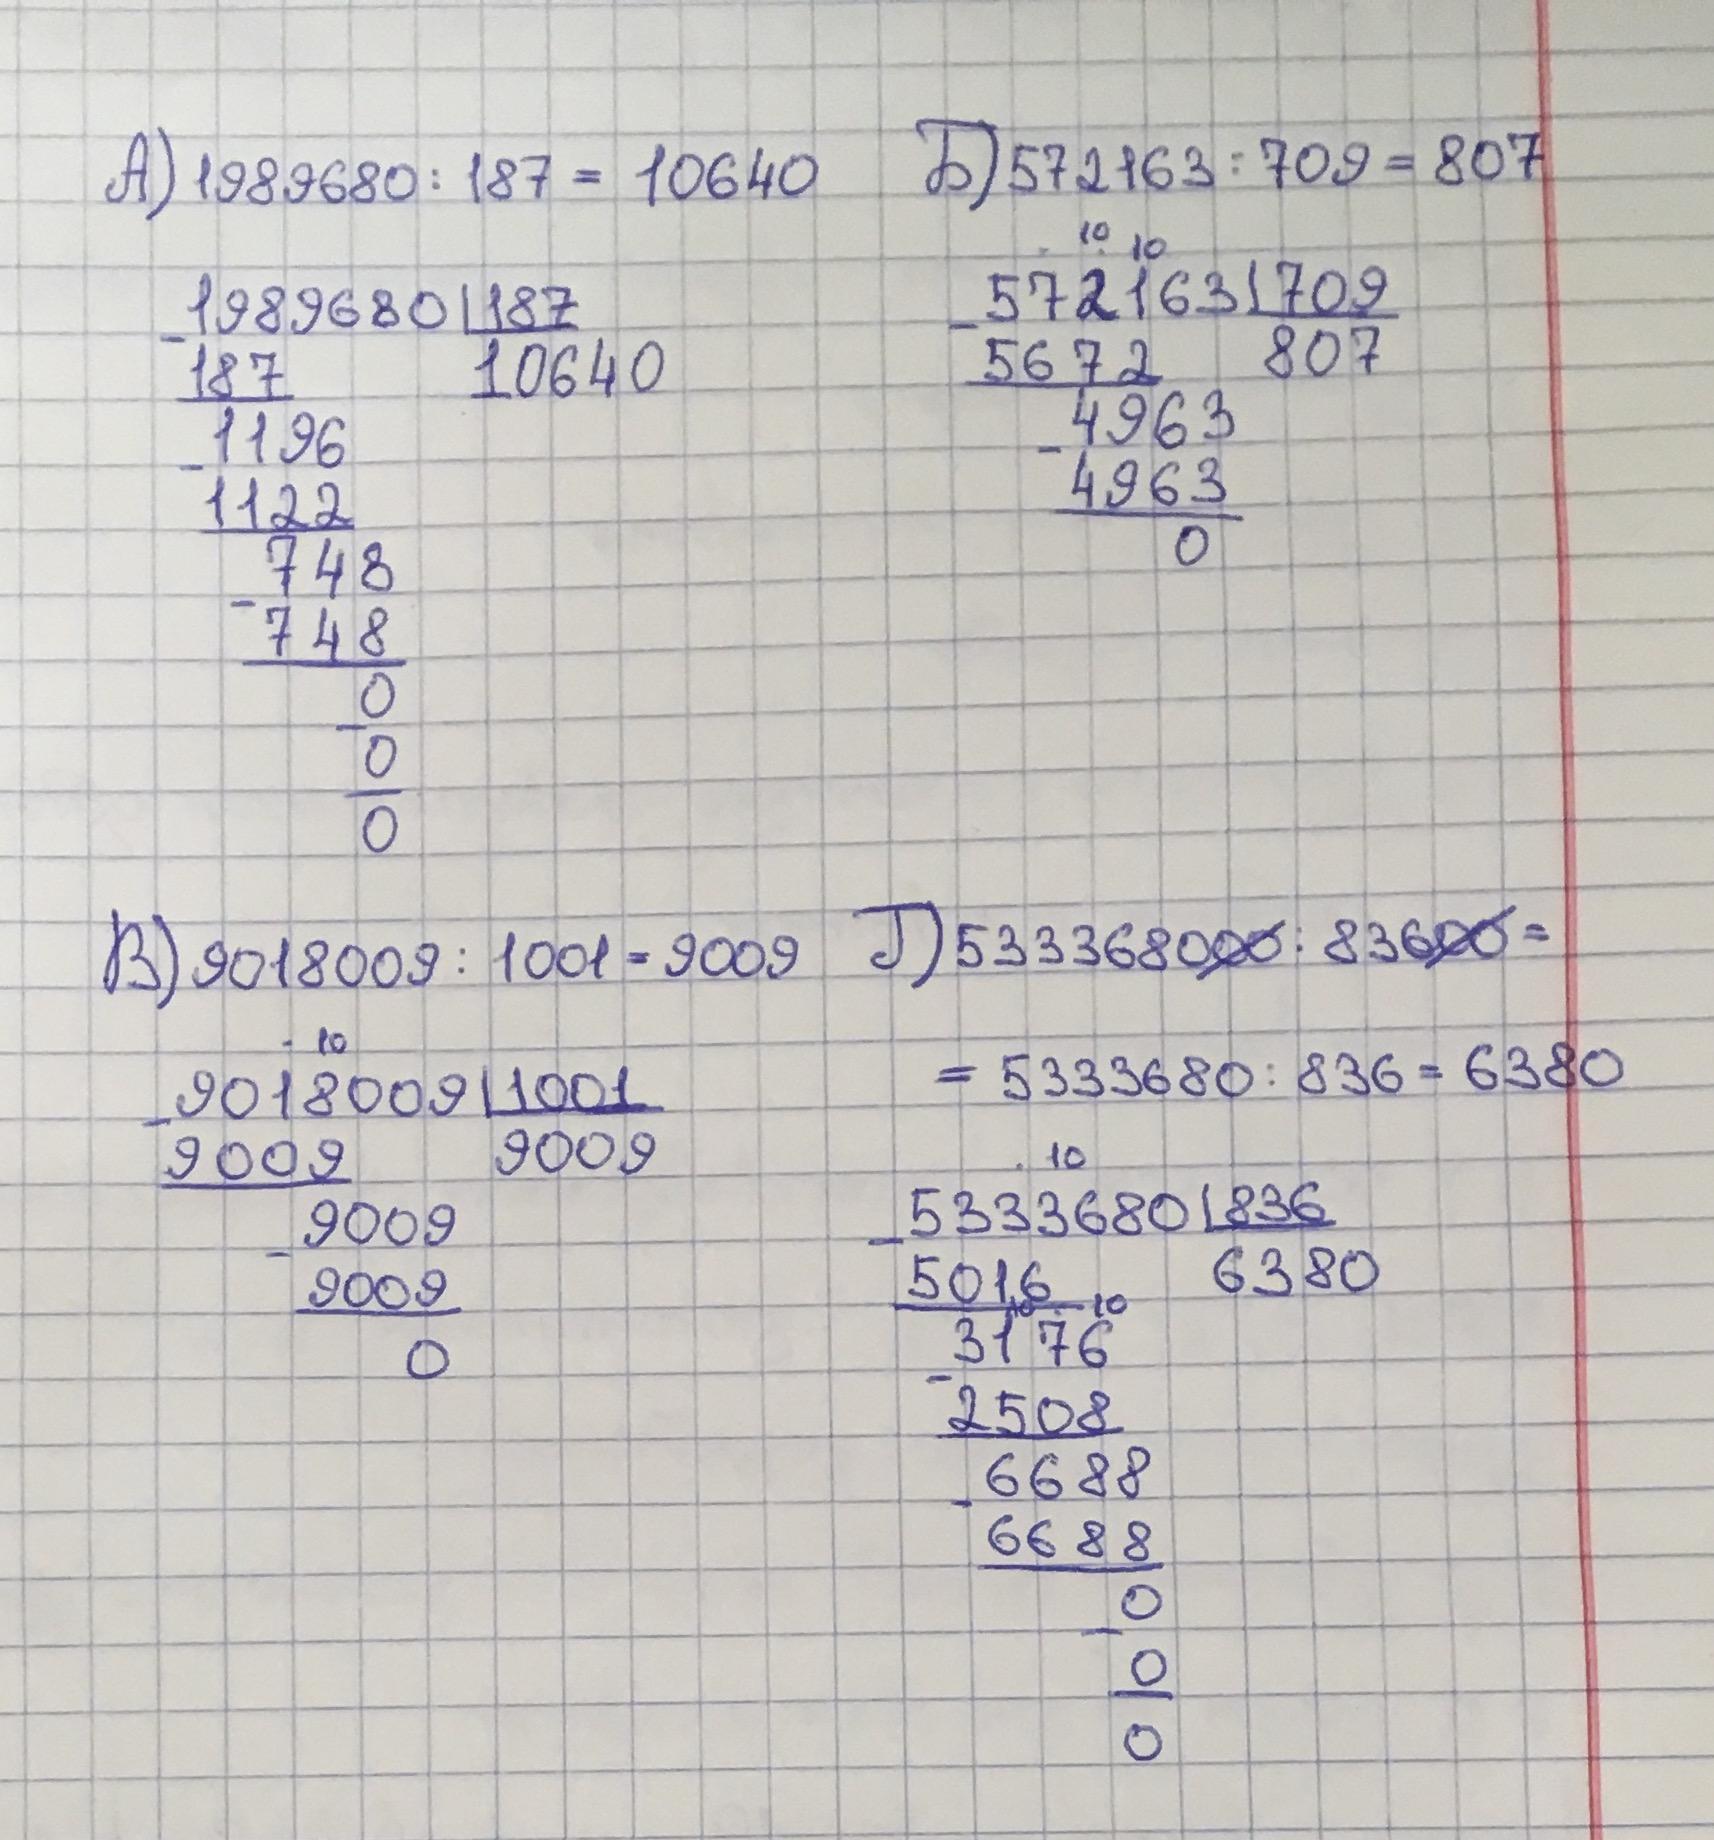 А) 1989680 : 187 = 10640
1989680 187
- 187 10640
1196
- 1122
748
- 748
0
- 0
0
Б) 572163 : 709 = 807
. 10 . 10
572163 709
- 5672 807
4963
- 4963
0
В) 9018009 : 1001 = 9009
. 10
9018009 1001
- 9009 9009
9009
- 9009
0
Г) 533368000 : 83600 =
= 5333680 : 836 = 6380
. 10
5333680 836
- 5016 6380
10 . 10
3176
- 2508
6688
- 6688
0
- 0
0